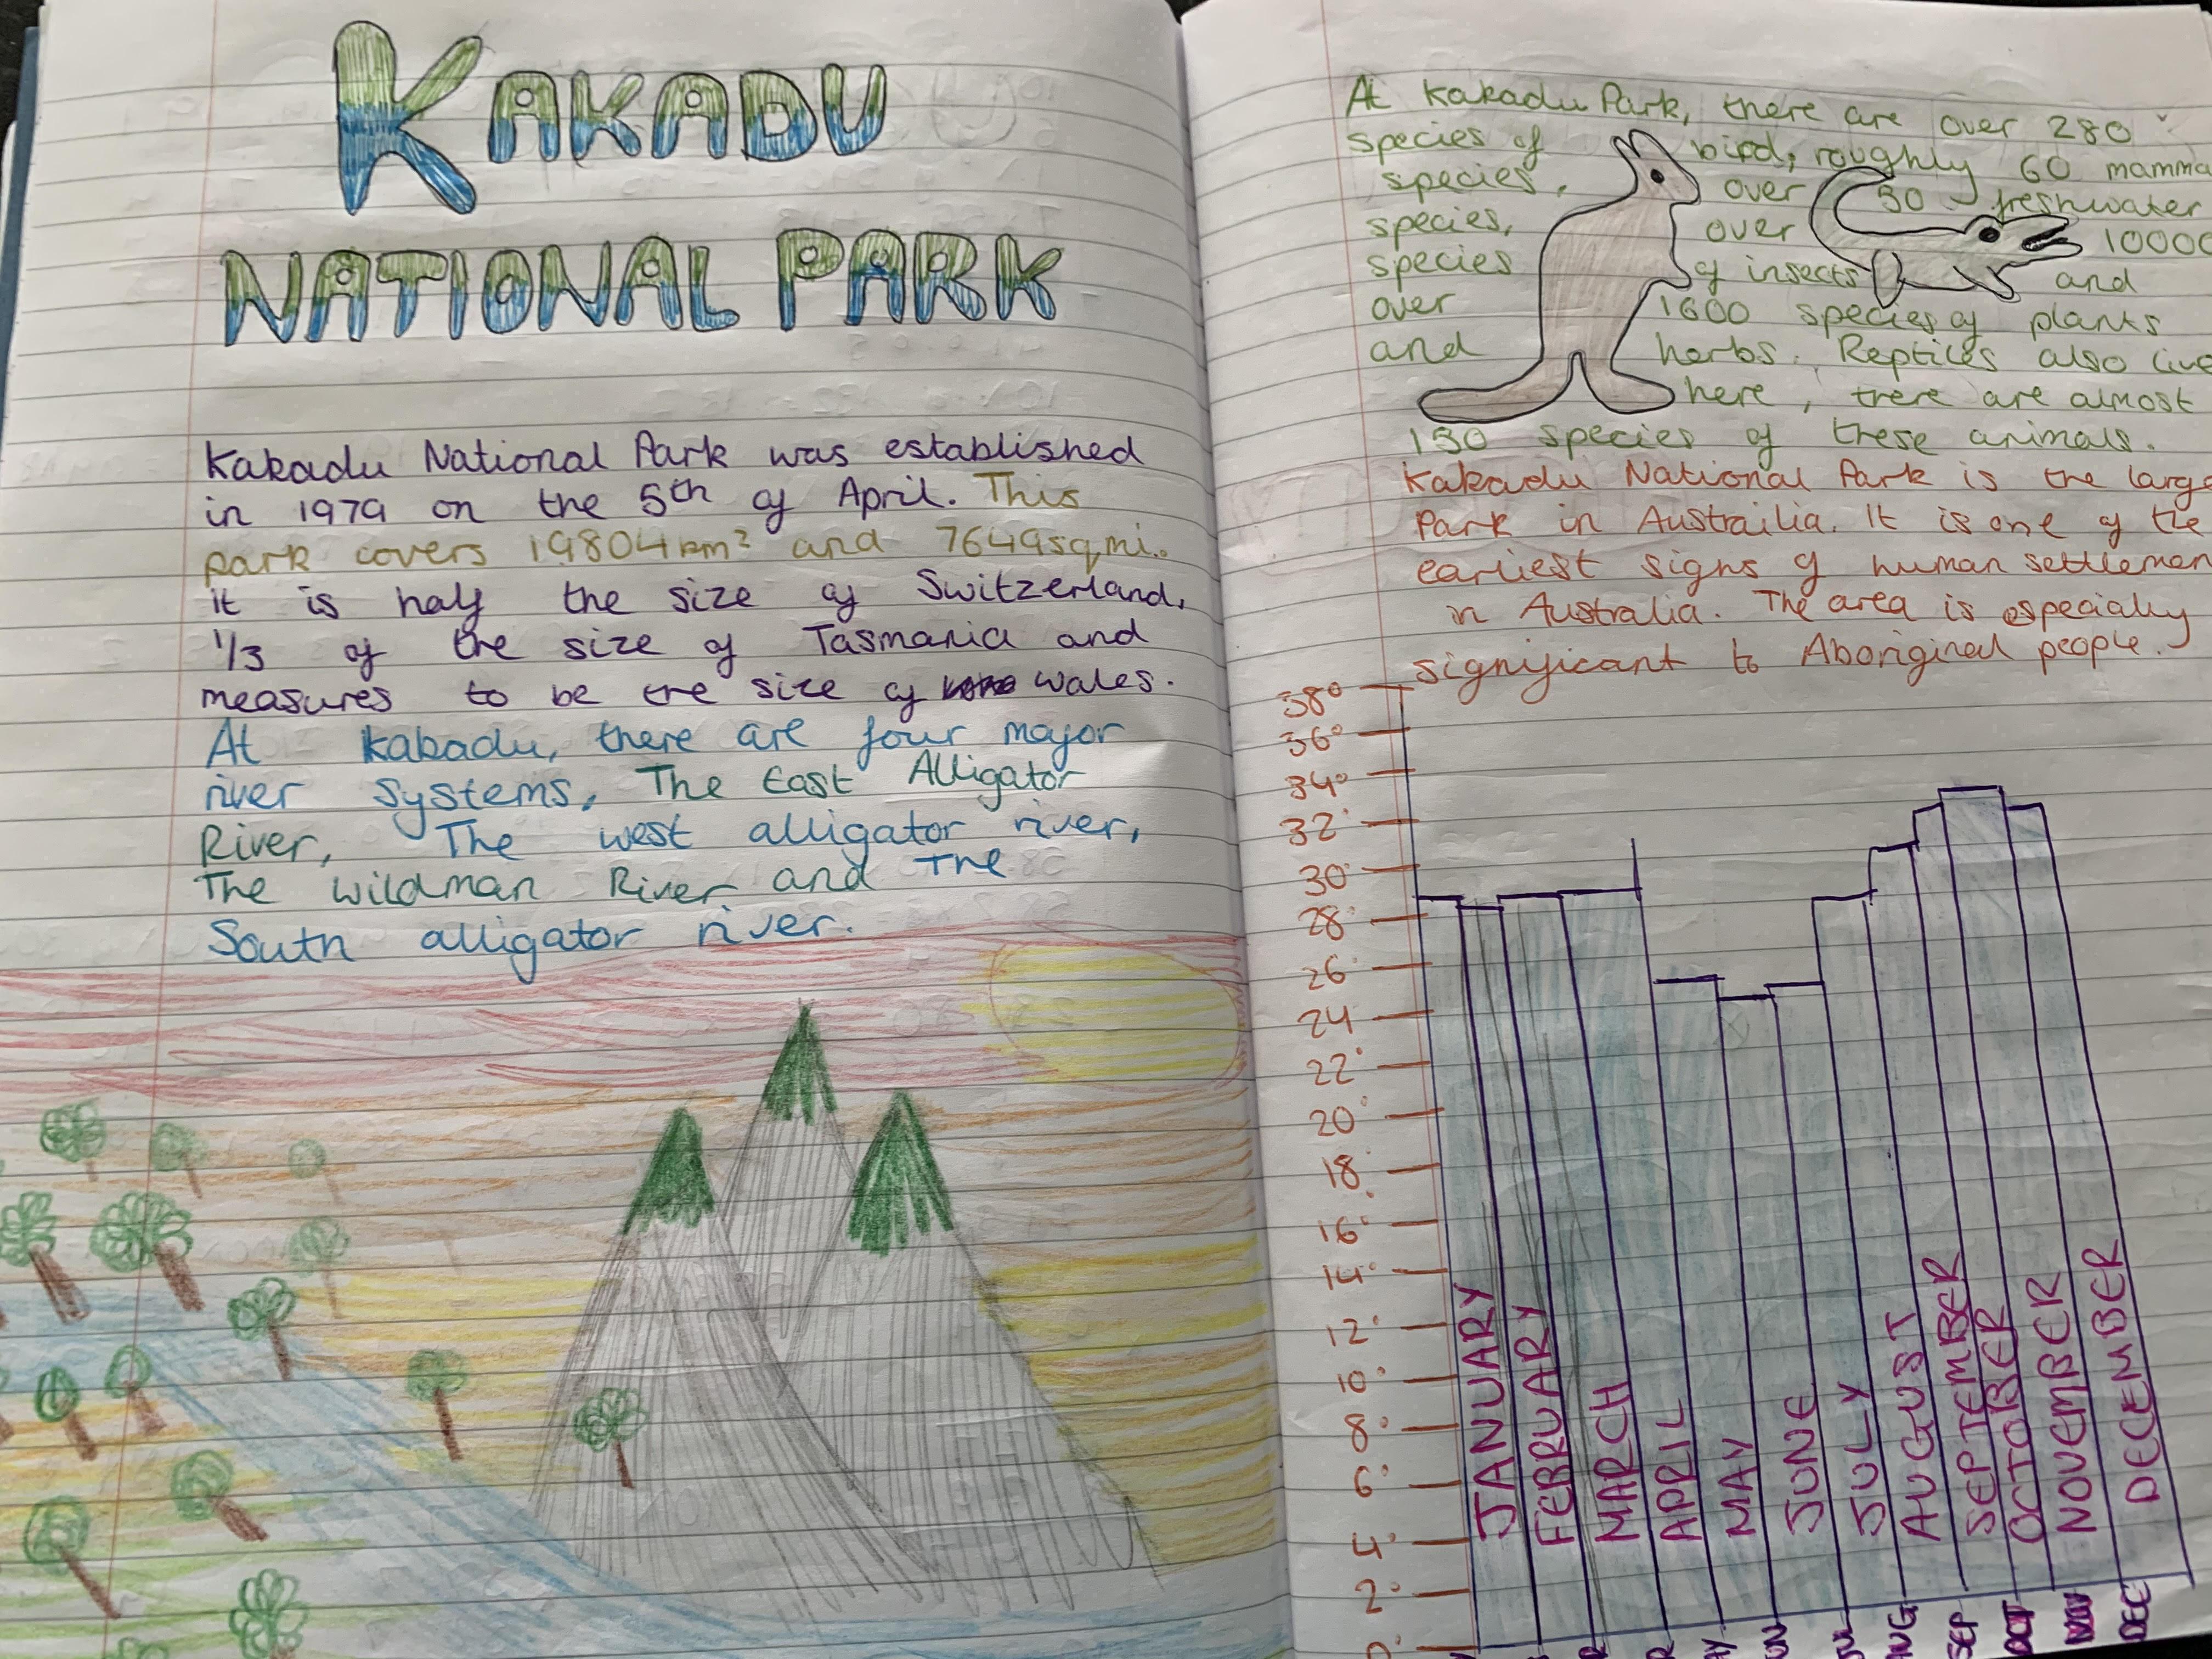 KAKADU
NATIONAL PARK
Kakadu National Park was established
in 1979 on the 5th of April. This
park covers 19804km² and 7649sqmi.
it is half the size of Switzerland,
1/3 of the size of Tasmania and
measures to be the size of Wales.
At Kakadu, there are four major
river systems, The East Alligator
River, The west alligator river,
The Wildman River and The
South alligator river.
At Kakadu Park, there are over 280
species of bird, roughly 60 mamma
species, over 50 freshwater
species, over 10000
species of insects and
over 1600 species of plants
and herbs. Reptiles also live
here, there are almost
130 species of these animals.
Kakadu National Park is the large
Park in Austrailia. It is one of the
earliest signs of human settlemen
in Australia. The area is especially
significant to Aboriginal people.
38°
36°
34°
32°
30°
28°
26°
24
22°
20°
18°
16°
14°
12°
10°
8°
6°
4°
2°
0°
JANUARY
FEBRUARY
MARCH
APRIL
MAY
JUNE
JULY
AUGUST
SEPTEMBER
OCTOBER
NOVEMBER
DECEMBER
SEP
OCT
NOV
DEC